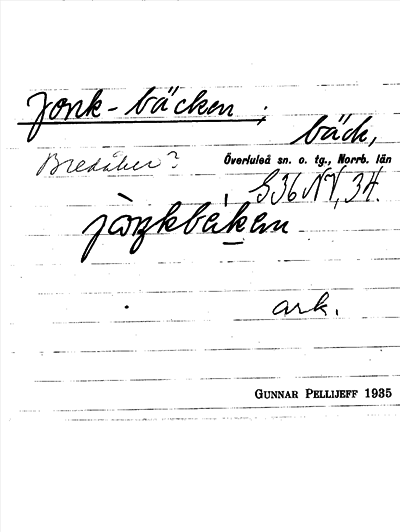 Jonk-bäcken ;
bäck,
Bredåker? Överluleå sn. o. tg., Norrb. län
G36 NV, 34.
ark.
GUNNAR PELLIJEFF 1935